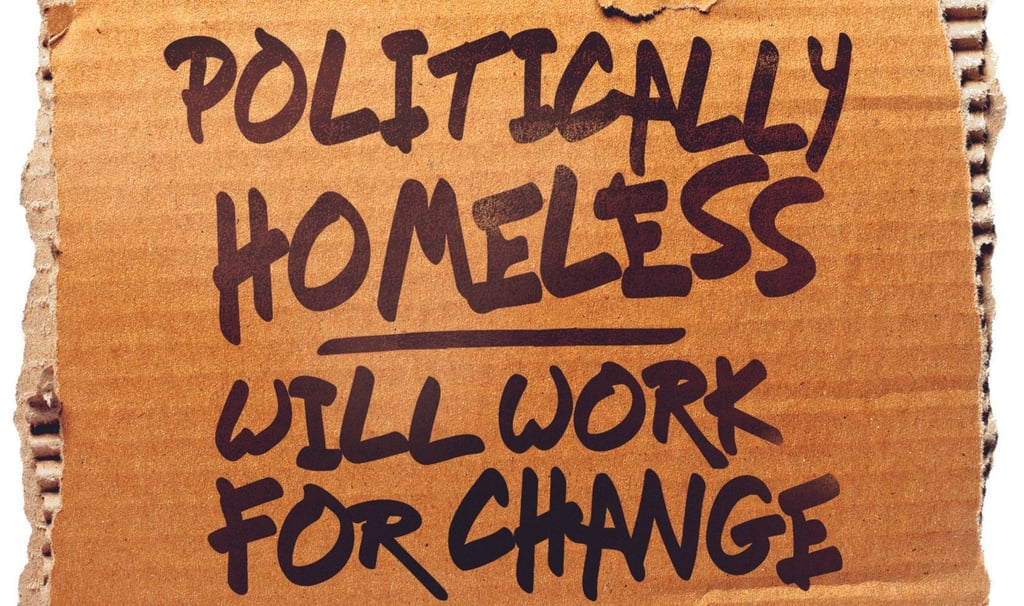 POLITICALLY
HOMELESS
WILL WORK
FOR CHANGE